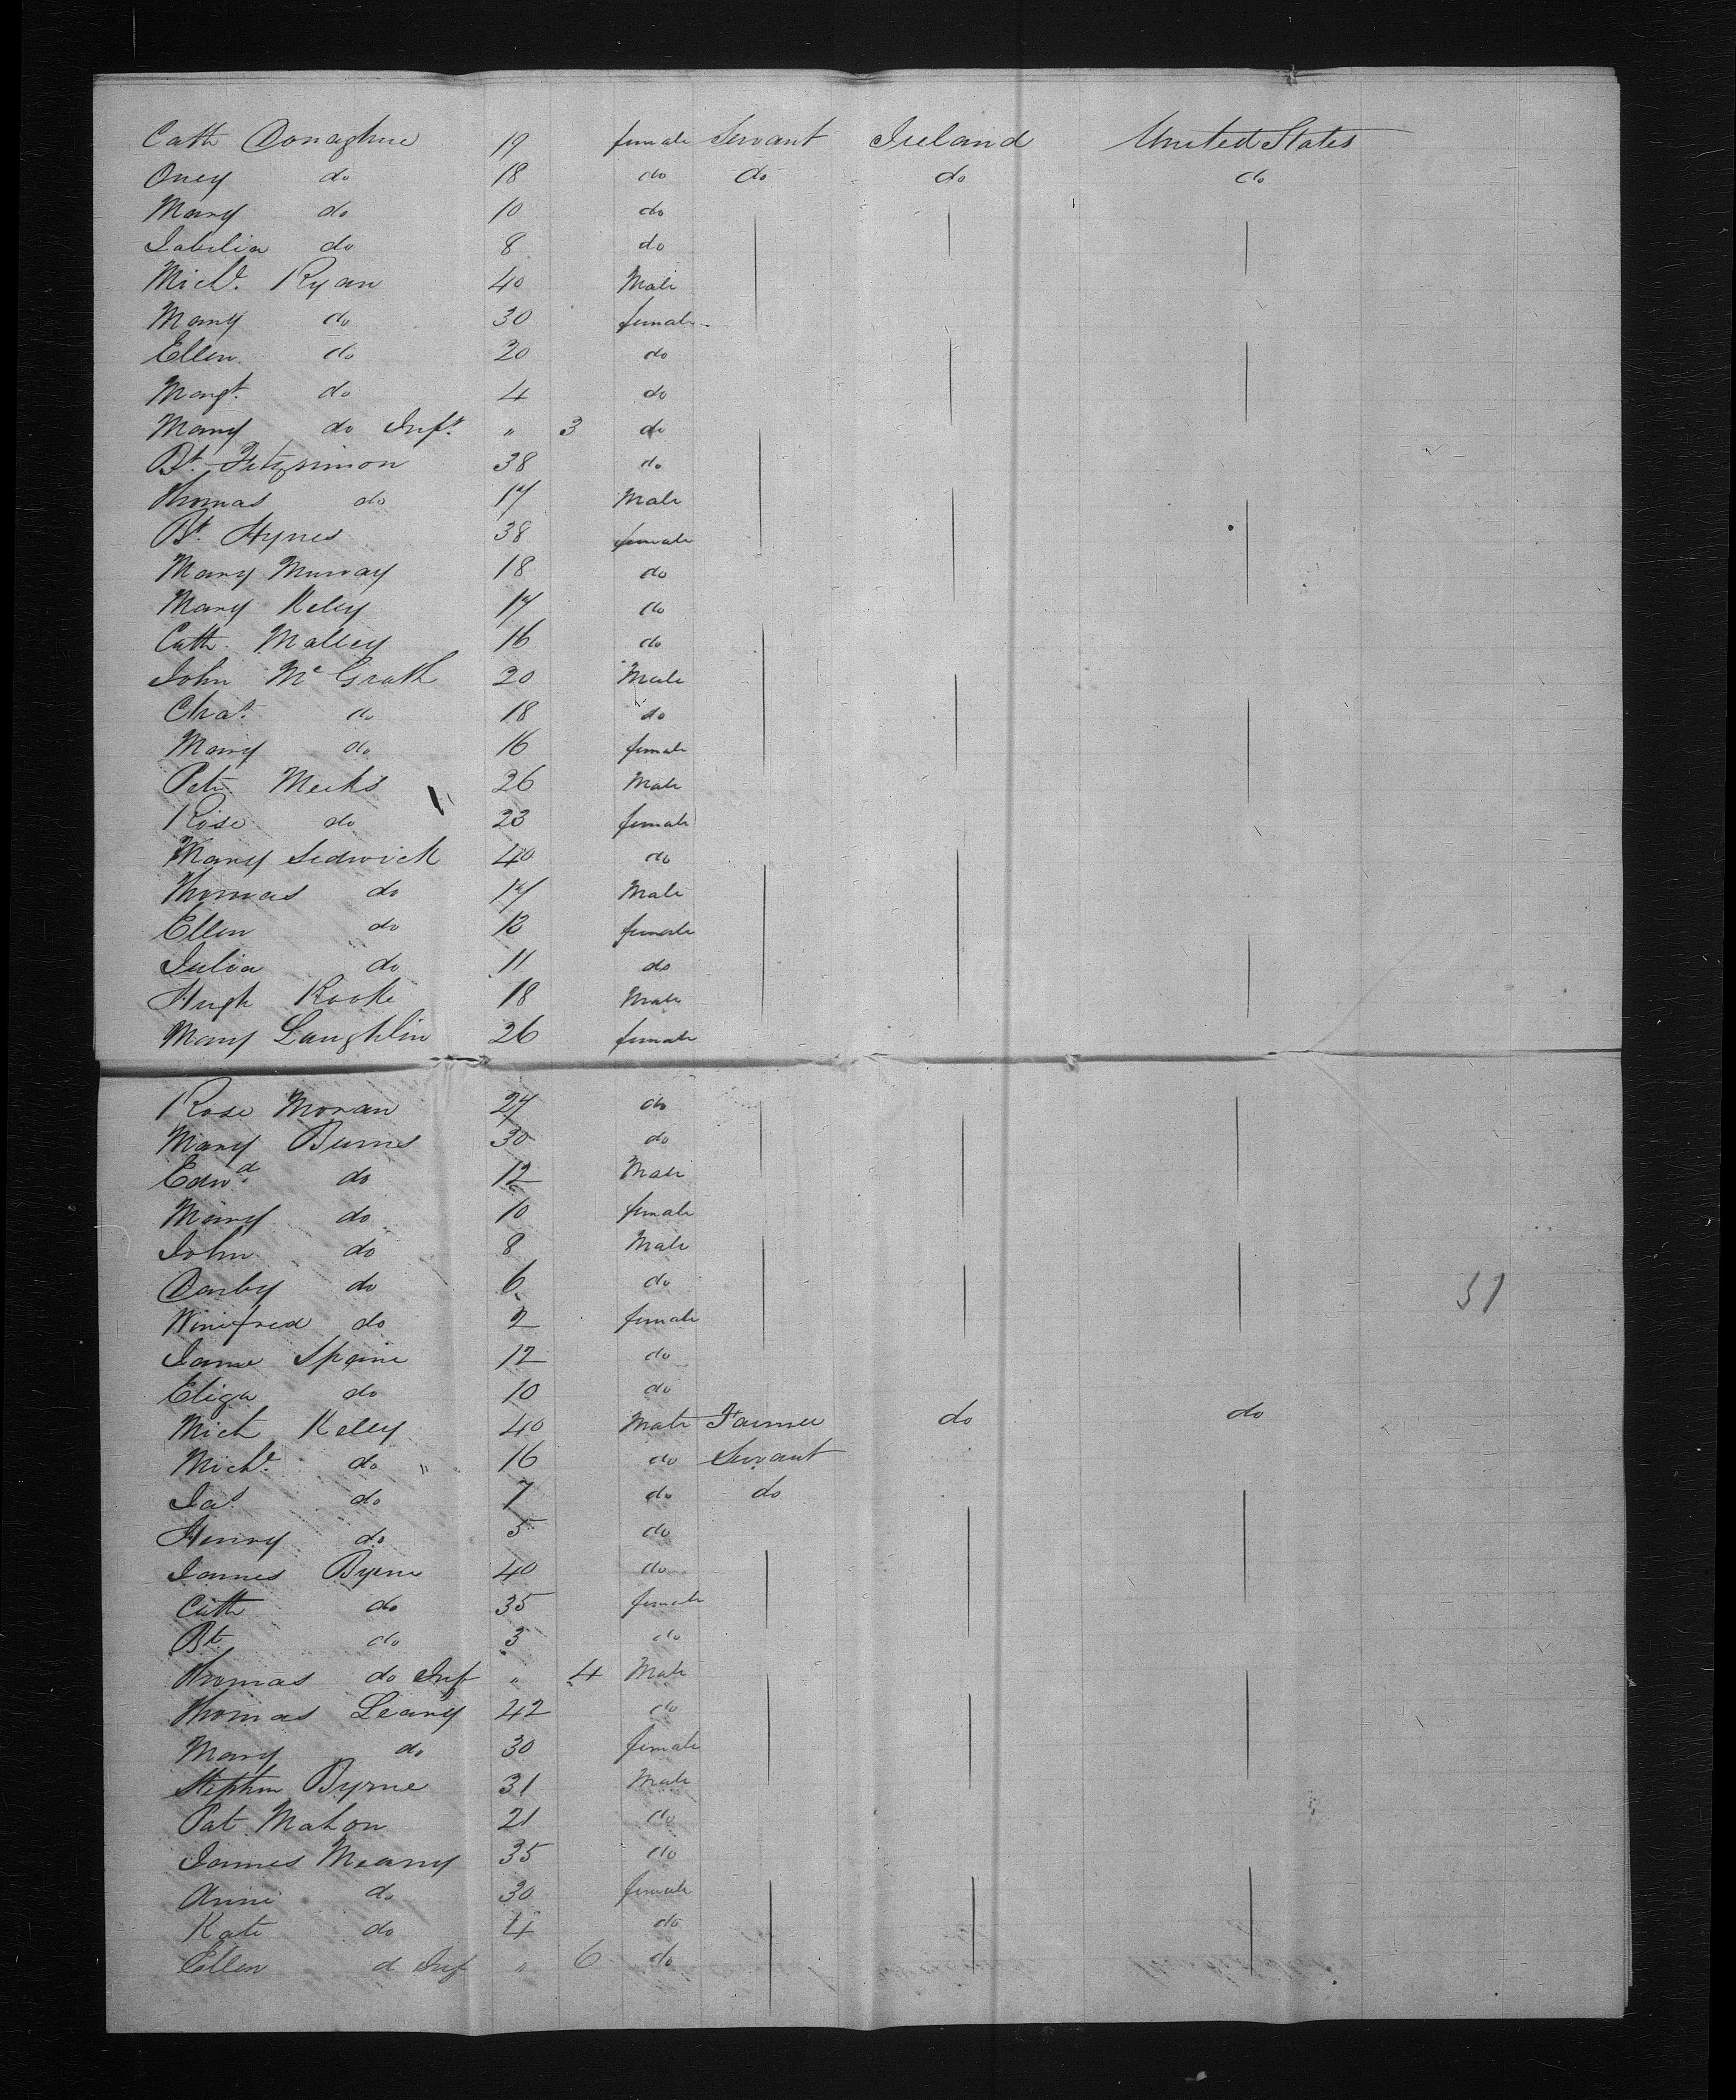 Cath Donaghue 19 female Servant Ireland United States
Oney do 18 do do do do
Mary do 10 do
Sabilia do 8 do
Michl. Ryan 40 Male
Mary do 30 female
Ellen do 20 do
Margt. do 4 do
Mary do Inft. " 3 do
Bt. Fitzsimon 38 do
Thomas do 17 Male
Bt. Hynes 38 female
Mary Murray 18 do
Mary Keley 17 do
Cath. Malley 16 do
John McGrath 20 Male
Chas. do 18 do
Mary do 16 female
Petr Meeks 26 Male
Rose do 23 female
Mary Sedwick 40 do
Thomas do 17 Male
Ellen do 13 female
Julia do 11 do
Hugh Rooke 18 Male
Mary Laughlin 26 female
Rose Moran 27 do
Mary Burns 30 do
Edwd. do 12 Male
Mary do 10 female
John do 8 Male
Darby do 6 do
Winifred do 2 female
Jane Spaine 12 do
Eliza do 10 do
Mich Kelly 40 Male Farmer do do
Michl. do " 16 do Servant
Jas do 7 do do
Henry do 5 do
James Byrne 40 do
Cath do 35 female
Bt do 3 do
Thomas do Inf " 4 Male
Thomas Leary 42 do
Mary do 30 female
Stephen Byrne 31 Male
Pat Mahon 21 do
James Meany 35 do
Anne do 30 female
Kate do 4 do
Ellen d Inf " 6 do
51